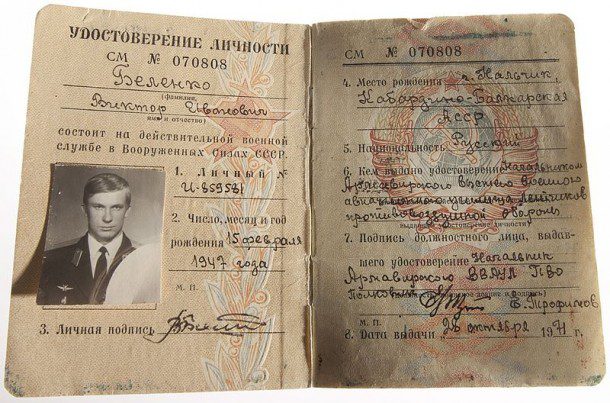 УДОСТОВЕРЕНИЕ ЛИЧНОСТИ
СМ № 070808
Беленко
(фамилия)
Виктор Иванович
имя и отчество)
состоит на действительной военной
службе в Вооруженных Силах СССР.
1. Личный №
И-859581
2. Число, месяц и год
рождения 15 февраля
1947 года
М. П.
3. Личная подпись
СМ № 070808
4. Место рождения г. Нальчик
Кабардино-Балкарская
АССР
5. Национальность Русский
6. Кем выдано удостоверение Начальником
Армавирского высшего военного
авиационного училища летчиков
противовоздушной обороны
7. Подпись должностного лица, выдав-
шего удостоверение Начальник
Армавирского ВВАУЛ ПВО
Полковник Е. Трофимов
М. П.
8. Дата выдачи 26 октября 1971 г.